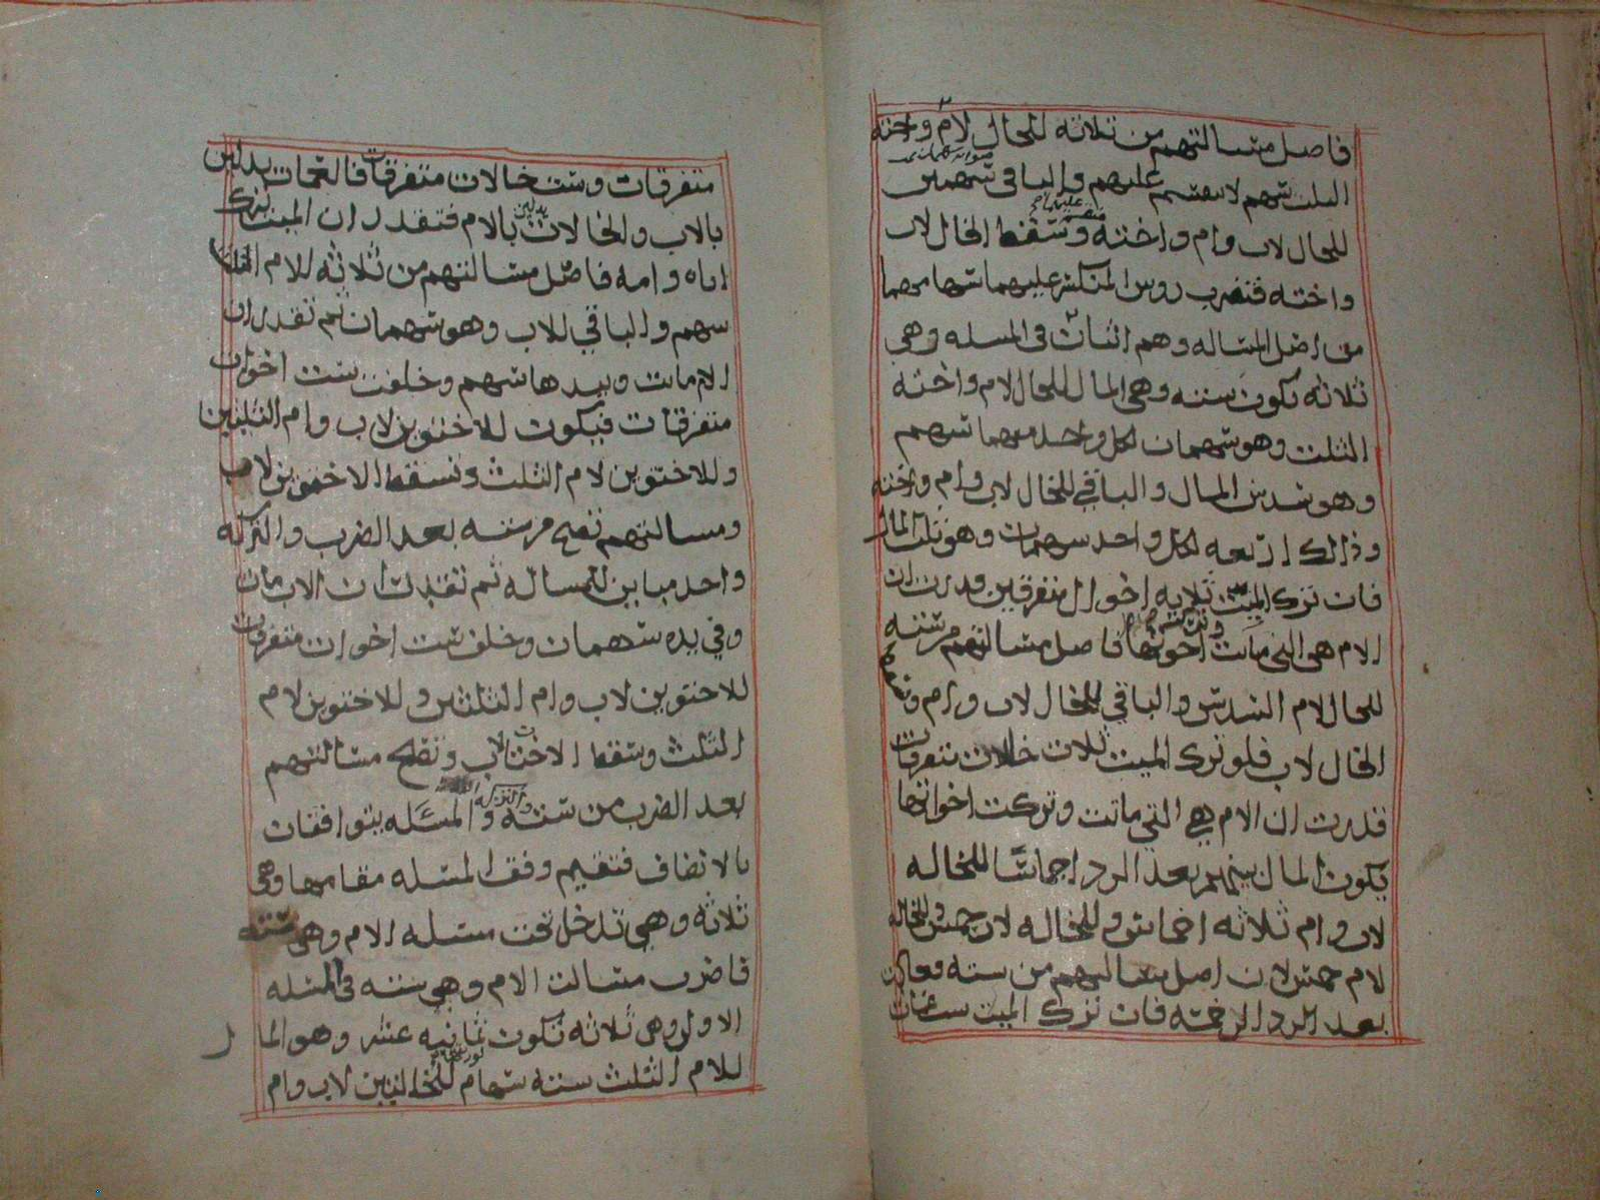 فاصل مسالتهم من ثلاثه للخال لام واخته
الثلث سهم لا ينقسم عليهم والباقي سهمين
للخال لاب وام واخته وسقط الخال لاب
واخته فتضرب روس المنكسر عليهما سهامهما
من اصل المساله وهم اثنان في المسله وهي
ثلاثه تكون سته وهي المال للخال لام واخته
الثلث وهو سهمان لكل واحد منهما سهم
وهو سدس المال والباقي للخال لاب وام واخته
وذالك اربعه لكل واحد سهمان وهو ثلث المال
فان ترك الميت ثلاثه اخوال متفرقين قدرت ان
الام هي التي ماتت وتركت اخوتها فاصل مسالتهم من سته
للخال لام السدس والباقي للخال لاب وام وسقط
الخال لاب فلو ترك الميت ثلاث خالات متفرقات
قدرت ان الام هي التي ماتت وتركت اخواتها
يكون المال بينهم بعد الرد اخماسا للخاله
لاب وام ثلاثه اخماس وللخاله لاب خمس وللخاله
لام خمس لان اصل مسالتهم من سته فعادت
بعد الرد الى خمسه فان ترك الميت ست عمات
متفرقات وست خالات متفرقات فالعمات يدلين
بالاب والخالات يدلين بالام فتقدر ان الميت ترك
اباه وامه فاصل مسالتهم من ثلاثه للام الثلث
سهم والباقي للاب وهو سهمان ثم تقدر ان
الام ماتت وبيدها سهم وخلفت ست اخوات
متفرقات فيكون للاختوين لاب وام الثلثين
وللاختوين لام الثلث وتسقط الاختوين لاب
ومسالتهم تصح من سته بعد الضرب والتركه
واحد مباين للمساله ثم تقدر ان الاب مات
وفي يده سهمان وخلف ست اخوات متفرقات
للاختوين لاب وام الثلثين وللاختوين لام
الثلث وسقط الاختان لاب وتصح مسالتهم
بعد الضرب من سته والتركه والمسئله يتوافقان
بالانصاف فتقيم وفق المسله مقامها وهي
ثلاثه وهي تدخل تحت مسله الام وهي سته
فاضرب مسالت الام وهي سته في المسله
الاولى وهي ثلاثه تكون ثمانيه عشر وهو المال
للام الثلث سته سهام للخالتين لاب وام